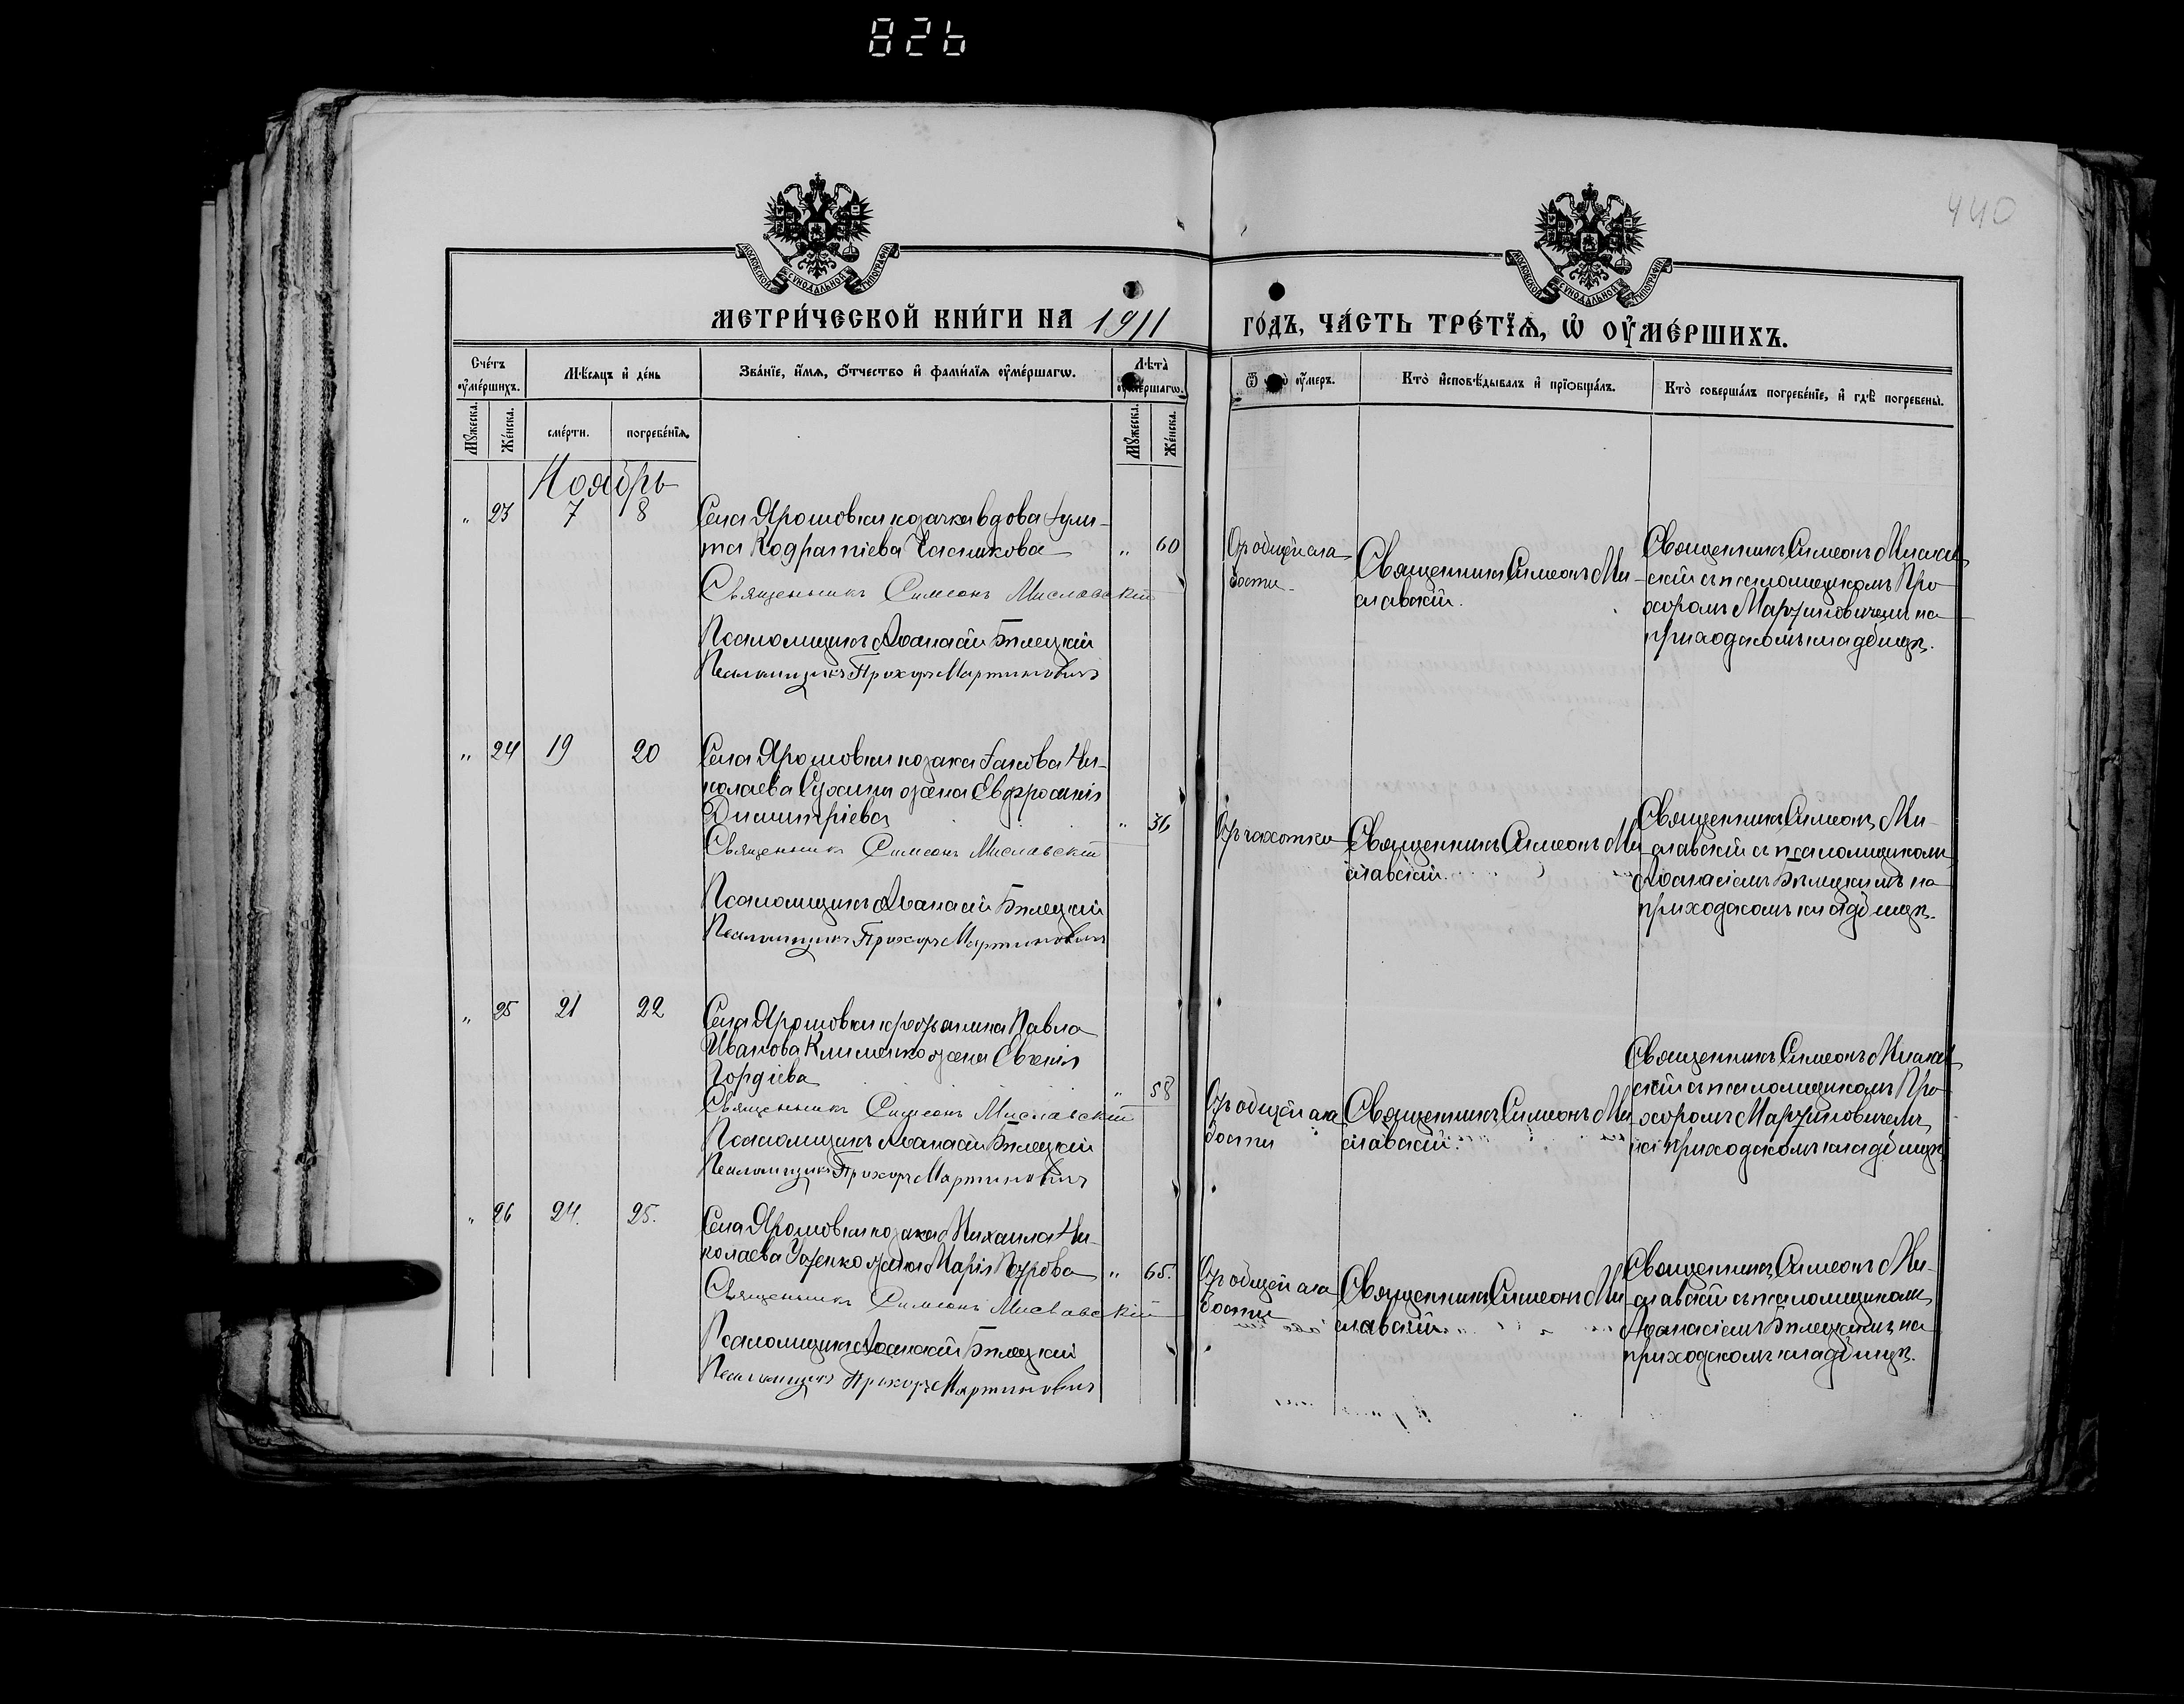 826
440
МОСКОВСКОЙ СѴНОДАЛЬНОЙ ТИПОГРАФІИ
МОСКОВСКОЙ СѴНОДАЛЬНОЙ ТИПОГРАФІИ
МЕТРИ́ЧЕСКОЙ КНИ́ГИ НА 1911 ГО́ДЪ, ЧА́СТЬ ТРЕ́ТЇѦ, Ѡ҆ ОУ҆МЕ́РШИХЪ.
Сче́тъ оу҆ме́ршихъ.
Мꙋ́жеска.
Же́нска.
Мѣ́сѧцъ и҆ де́нь
сме́рти.
погребе́нїѧ.
Зва́нїе, и҆́мѧ, ѻ҆́тчество и҆ фами́лїѧ оу҆ме́ршагѡ.
Лѣ́та оу҆ме́ршагѡ.
Мꙋ́жеска.
Же́нска.
Ѿ чегѡ̀ оу҆́меръ.
Кто̀ и҆сповѣ́дывалъ и҆ прїѡбща́лъ.
Кто̀ соверша́лъ погребе́нїе, и҆ гдѣ̀ погребены̀.
Ноябрь
" 23 7 8
Села Ярошовки козачка вдова Іули-
та Кодратіева Часникова " 60
Священникъ Симеонъ Миславскій
Псаломщикъ Аѳанасій Бѣлецкій
Псаломщикъ Прохоръ Мартиновичъ
Отъ общей сла
бости
Священникъ Симеонъ Ми-
славскій.
Священникъ Симеонъ Мислав
скій съ псаломщикомъ Про
хоромъ Мартиновичемъ на
приходскомъ кладбищѣ.
" 24 19 20
Села Ярошовки козака Іакова Ни-
колаева Сухины жена Евфросинія
Димитріева " 36
Священникъ Симеонъ Миславскій
Псаломщикъ Аѳанасій Бѣлецкій
Псаломщикъ Прохоръ Мартиновичъ
Отъ чахотки
Священникъ Симеонъ Ми
славскій.
Священникъ Симеонъ Ми-
славскій съ псаломщикомъ
Аѳанасіемъ Бѣлецкимъ на
приходскомъ кладбищѣ.
" 25 21 22
Села Ярошовки крестьянина Павла
Иванова Клименко жена Евгенія
Гордіева " 58
Священникъ Симеонъ Миславскій
Псаломщикъ Аѳанасій Бѣлецкій
Псаломщикъ Прохоръ Мартиновичъ
Отъ общей сла
бости
Священникъ Симеонъ Ми
славскій.
Священникъ Симеонъ Мислав
скій съ псаломщикомъ Про
хоромъ Мартиновичемъ
на приходскомъ кладбищѣ
" 26 24. 25.
Села Ярошовки козака Михаила Ни-
колаева жена Марія Петрова " 65.
Священникъ Симеонъ Миславскій
Псаломщикъ Аѳанасій Бѣлецкій
Псаломщикъ Прохоръ Мартиновичъ
Отъ общей сла
бости
Священникъ Симеонъ Ми
славскій
Священникъ Симеонъ Ми-
славскій съ псаломщикомъ
Аѳанасіемъ Бѣлецкимъ на
приходскомъ кладбищѣ.